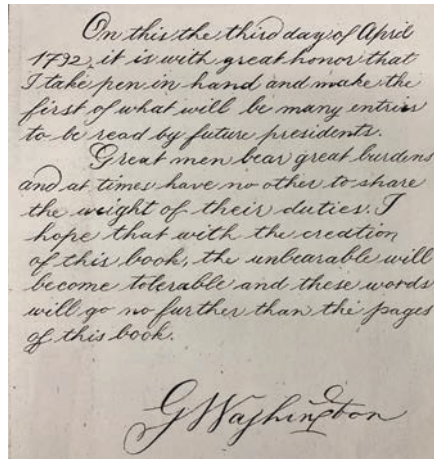 On this the third day of April
1792, it is with great honor that
I take pen in hand and make the
first of what will be many entries
to be read by future presidents.
Great men bear great burdens
and at times have no other to share
the weight of their duties. I
hope that with the creation
of this book, the unbearable will
become tolerable and these words
will go no further than the pages
of this book.
GWashington